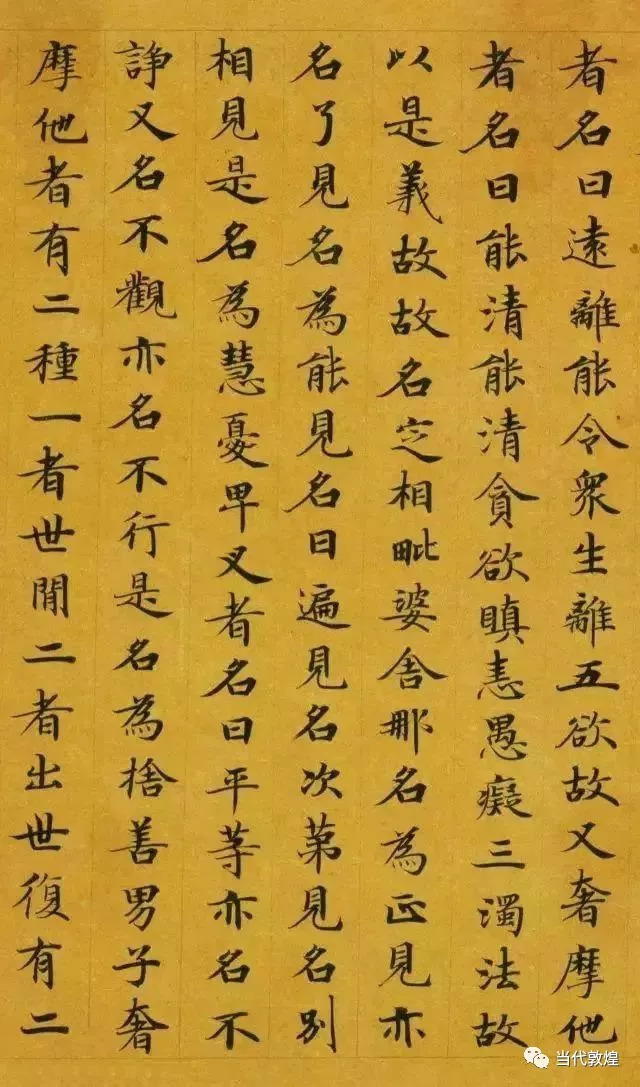 者名曰遠離能令衆生離五欲故又奢摩他
者名曰能清能清貪欲瞋恚愚癡三濁法故
以是義故故名定相毗婆舍那名為正見亦
名了見名為能見名曰遍見名次苐見名別
相見是名為慧憂畢叉者名曰平等亦名不
諍又名不觀亦名不行是名為捨善男子奢
摩他者有二種一者世閒二者出世復有二
当代敦煌